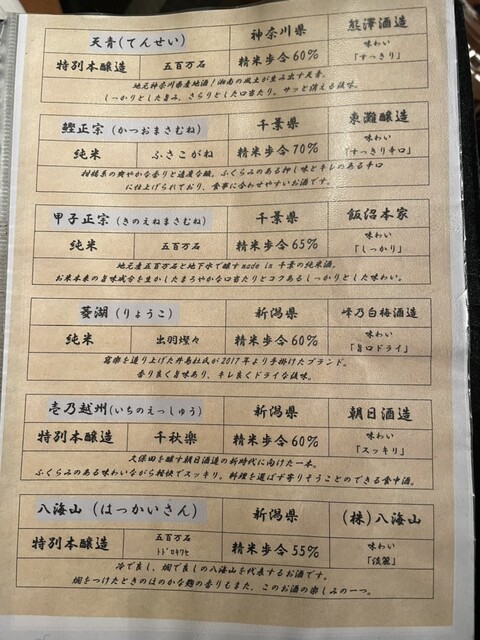 天青(てんせい) 神奈川県 熊澤酒造
特別本醸造 五百万石 精米歩合60% 味わい「すっきり」
地元神奈川県産地酒!湘南の風土が生み出す天青。
しっかりとした旨み、さらりとした口当たり。サッと消える後味。
鰹正宗(かつおまさむね) 千葉県 東灘醸造
純米 ふさこがね 精米歩合70% 味わい「すっきり辛口」
柑橘系の爽やかな香りと適度な酸。ふくらみのある押し味とキレのある辛口
に仕上げられており、食事に合わせやすいお酒です。
甲子正宗(きのえねまさむね) 千葉県 飯沼本家
純米 五百万石 精米歩合65% 味わい「しっかり」
地元産五百万石と地下水で醸すmade in 千葉の純米酒。
お米本来の旨味成分を生かしたまろやかな口当たりとコクあるしっかりとした味わい。
菱湖(りょうこ) 新潟県 峰乃白梅酒造
純米 出羽燦々 精米歩合60% 味わい「旨口ドライ」
を造り上げた井島杜氏が2017年より手掛けたブランド。
香り良く旨味あり、キレ良くドライな後味。
壱乃越州(いちのえっしゅう) 新潟県 朝日酒造
特別本醸造 千秋楽 精米歩合60% 味わい「スッキリ」
久保田を醸す朝日酒造の新時代に向けた一本。
ふくらみのある味わいながら軽快でスッキリ。料理を選ばず寄りそうことのできる食中酒。
八海山(はっかいさん) 新潟県 (株)八海山
特別本醸造 五百万石 トドロキワセ 精米歩合55% 味わい「淡麗」
冷で良し、燗で良しの八海山を代表するお酒です。
燗をつけたときのほのかな麹の香りもまた、このお酒の楽しみの一つ。